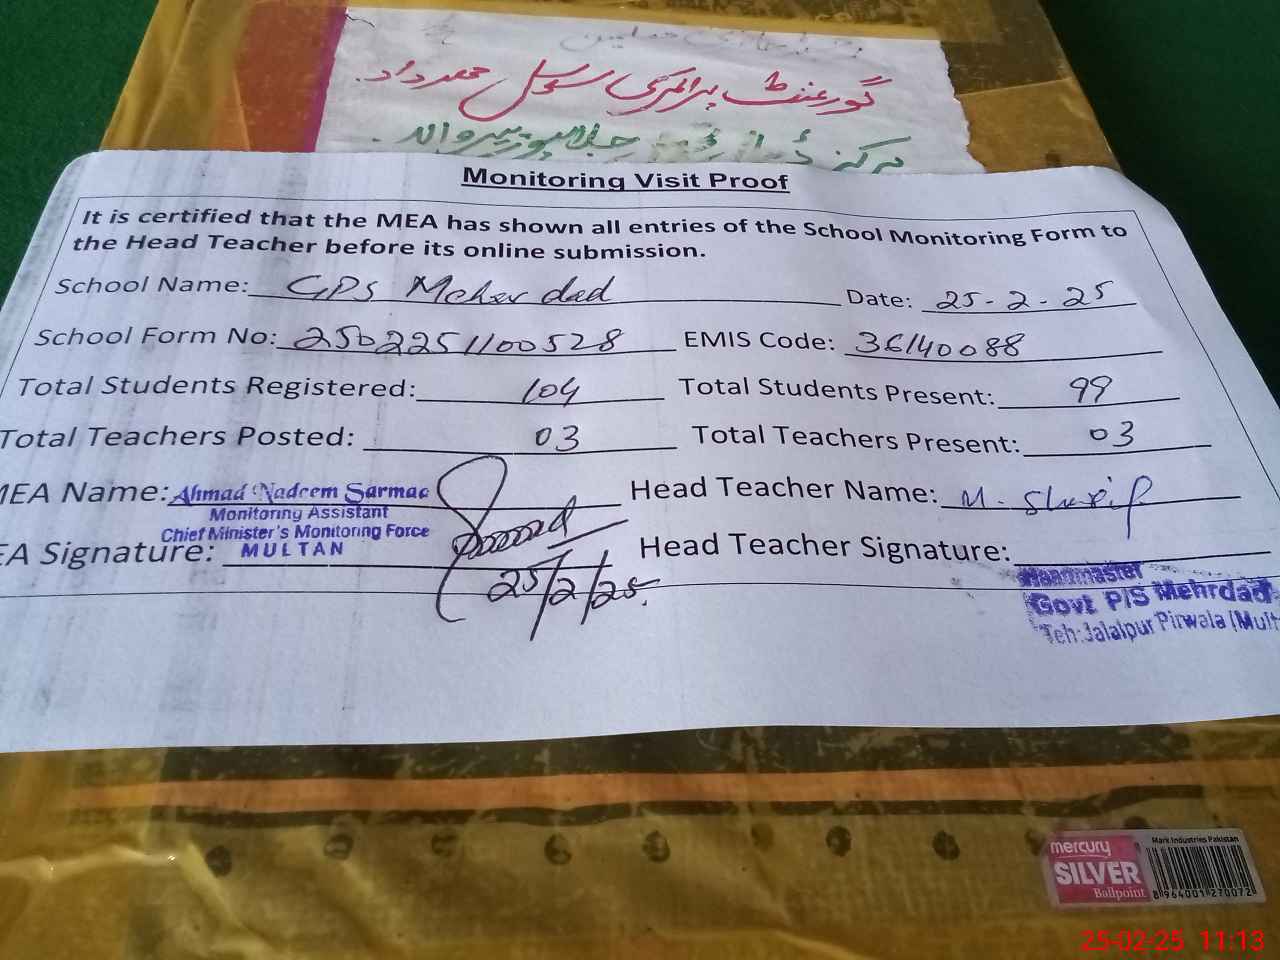 گورنمنٹ پرائمری سکول مہرداد
مرکز جلالپور پیروالہ
Monitoring Visit Proof
It is certified that the MEA has shown all entries of the School Monitoring Form to
the Head Teacher before its online submission.
School Name: GPS Meher dad Date: 25-2-25
School Form No: 2502251100528 EMIS Code: 36140088
Total Students Registered: 104 Total Students Present: 99
Total Teachers Posted: 03 Total Teachers Present: 03
MEA Name: Ahmad Nadeem Sarmad Head Teacher Name: M. Sharif
Monitoring Assistant
Chief Minister's Monitoring Force
EA Signature: MULTAN Head Teacher Signature:
25/2/25.
Headmaster
Govt P/S Mehrdad
Teh: Jalalpur Pirwala (Mult
mercury
SILVER
Ballpoint
Mark Industries Pakistan
8 964001 270072
25-02-25 11:13